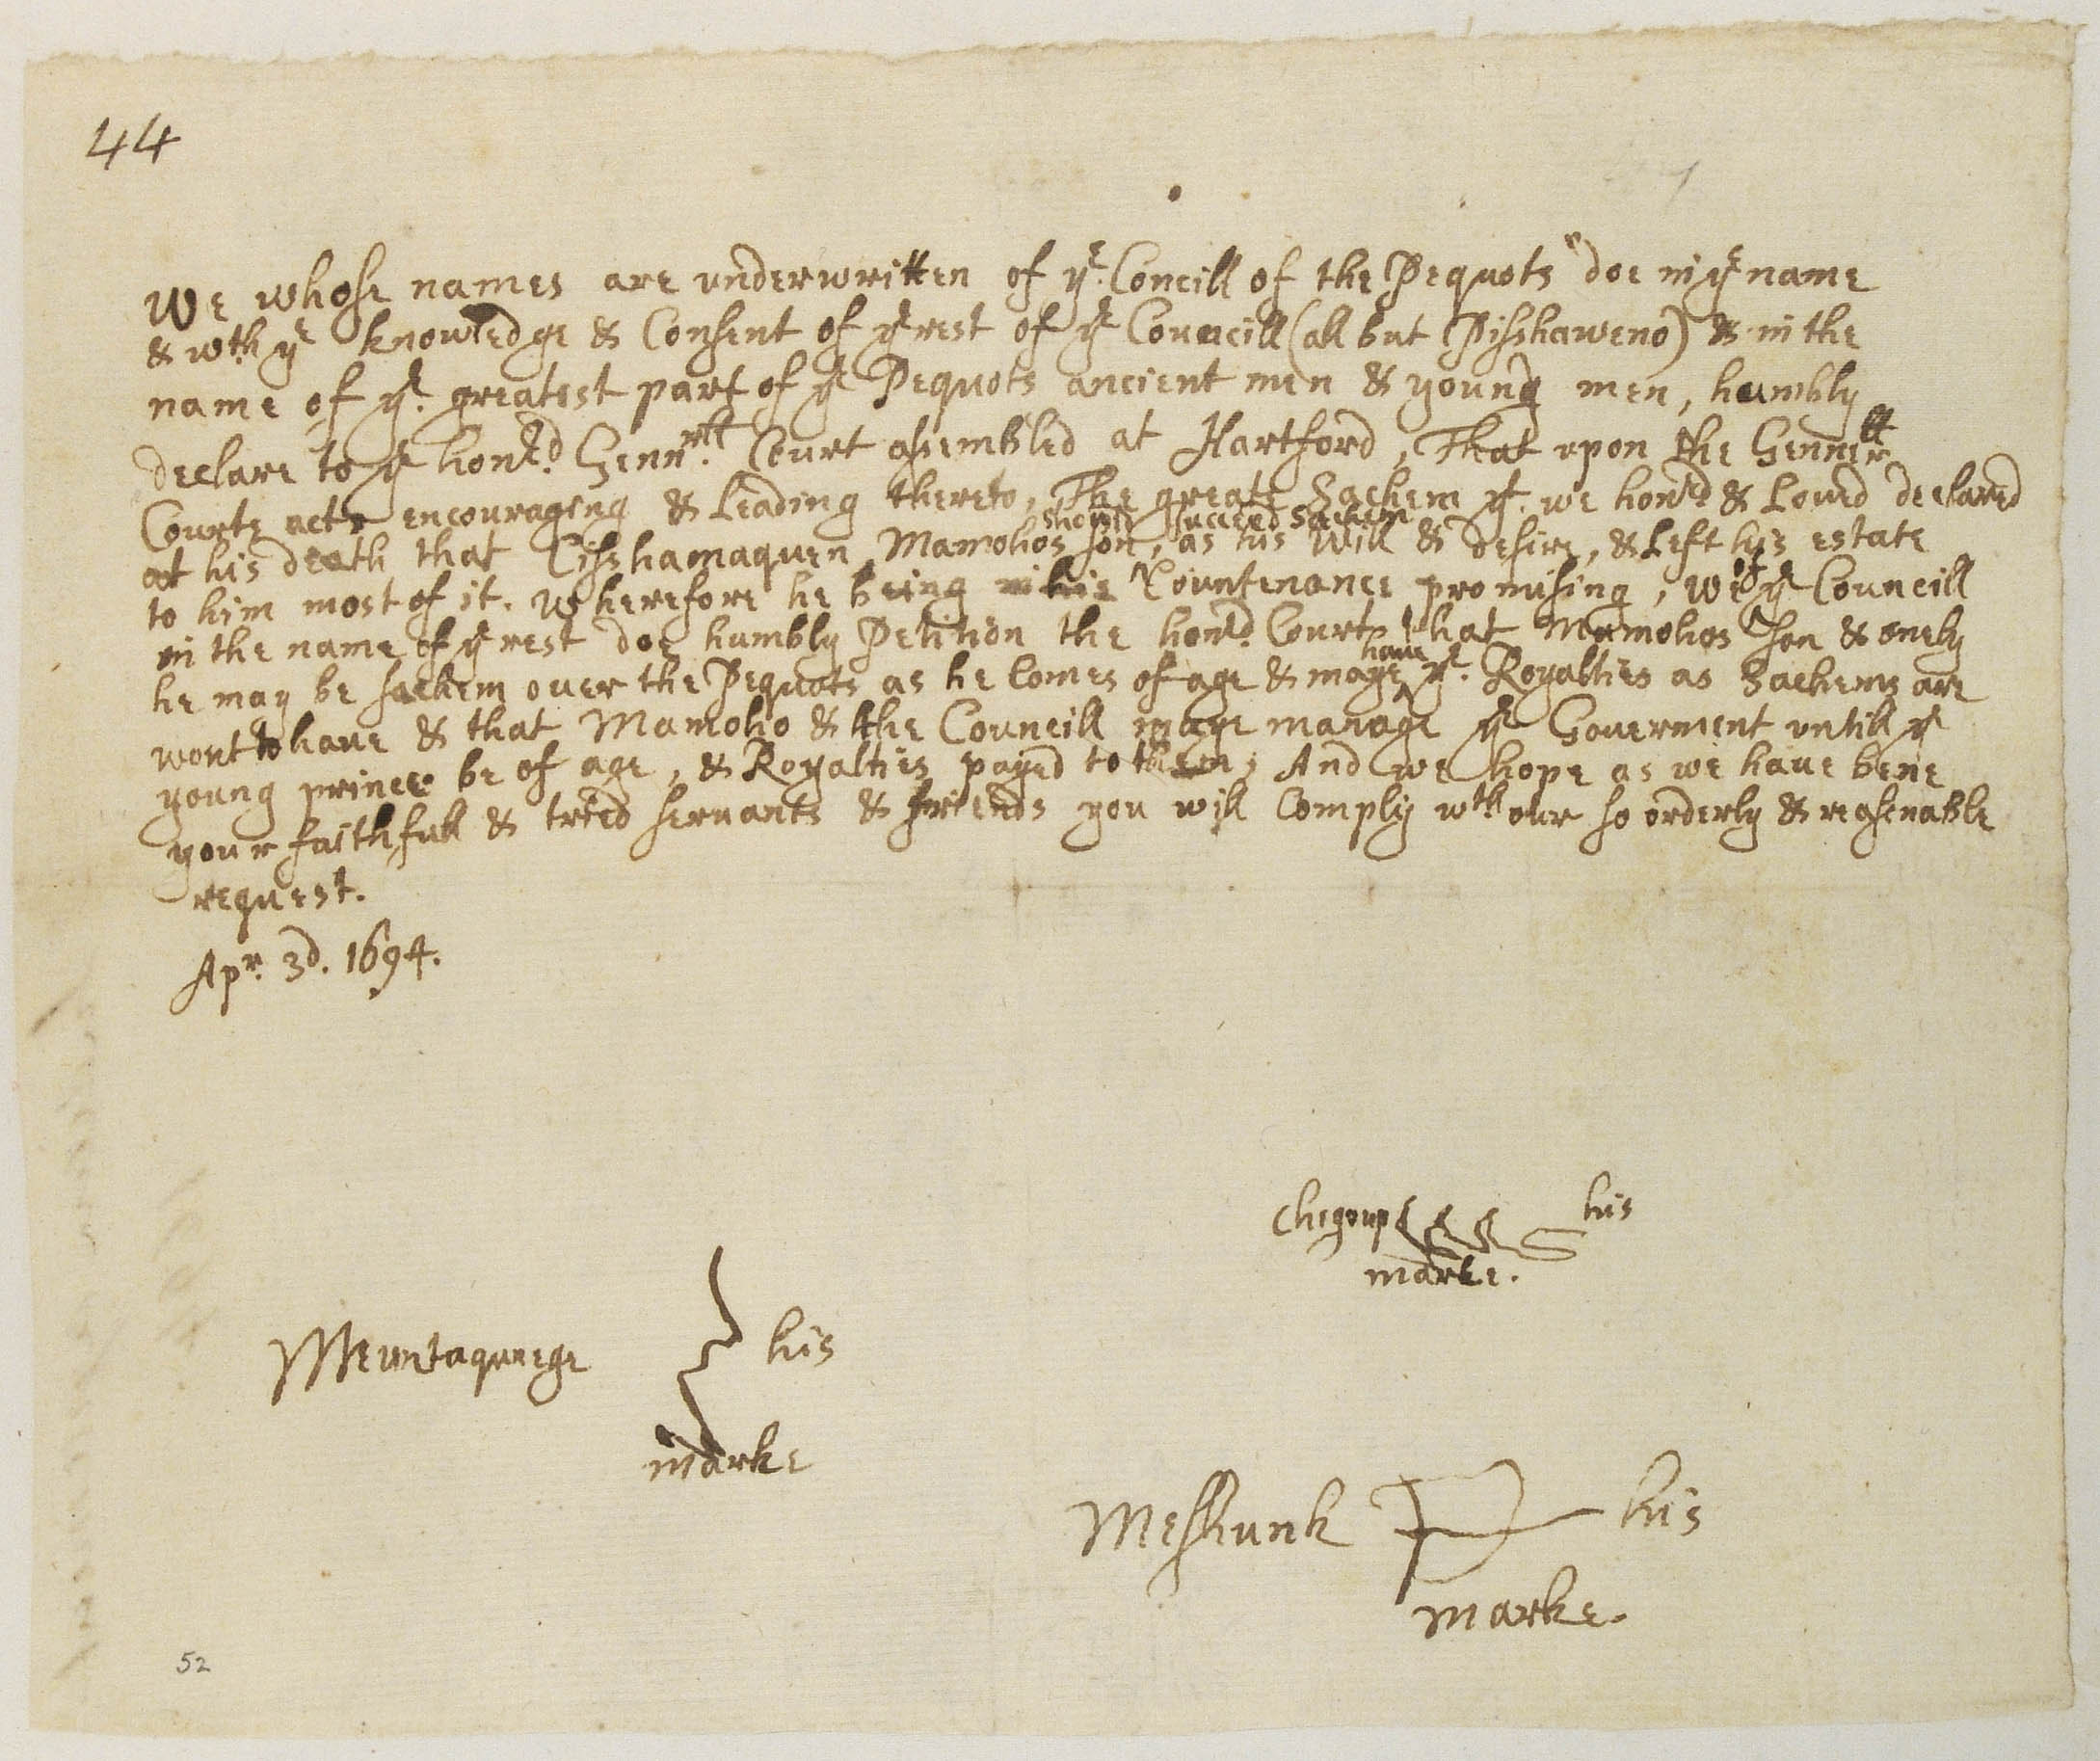 44
We whose names are underwritten of ye Concill of the Pequots doe in ye name
& wth ye knowledge & Consent of ye rest of ye Councill (all but Pisshaweno) & in the
name of ye. greatest part of ye Pequots ancient men & young men, humbly
declare to ye honrd. Gennrll. Court assembled at Hartford, That upon the Gennerll
Courts acts encouraging & Leading thereto, The greate Sachem yt. we honrd & Loued declared
should succeed Sachem
at his death that Cisshamaquen Mamohos son, as his Will & desire, & Left his estate
to him most of it. Wherefore he being Countenance promising, we of ye Councill
in the name of ye rest doe humbly Petition the honrd. Court that Mamohos son & onely
have
he may be sachem over the Pequots as he Comes of age & maye ye. Royalties as Sachems are
wont to haue & that Mamoho & the Councill maye manage ye Gouerment untill ye
young prince be of age, & Royalties payed to them; And we hope as we haue bene
your faithfull & tried seruants & friends you will Comply wth our so orderly & reasenable
request.
Apr. 3d. 1694.
Chegoup his
marke.
Meuntaqunege his
marke
Messhunk his
marke.
52